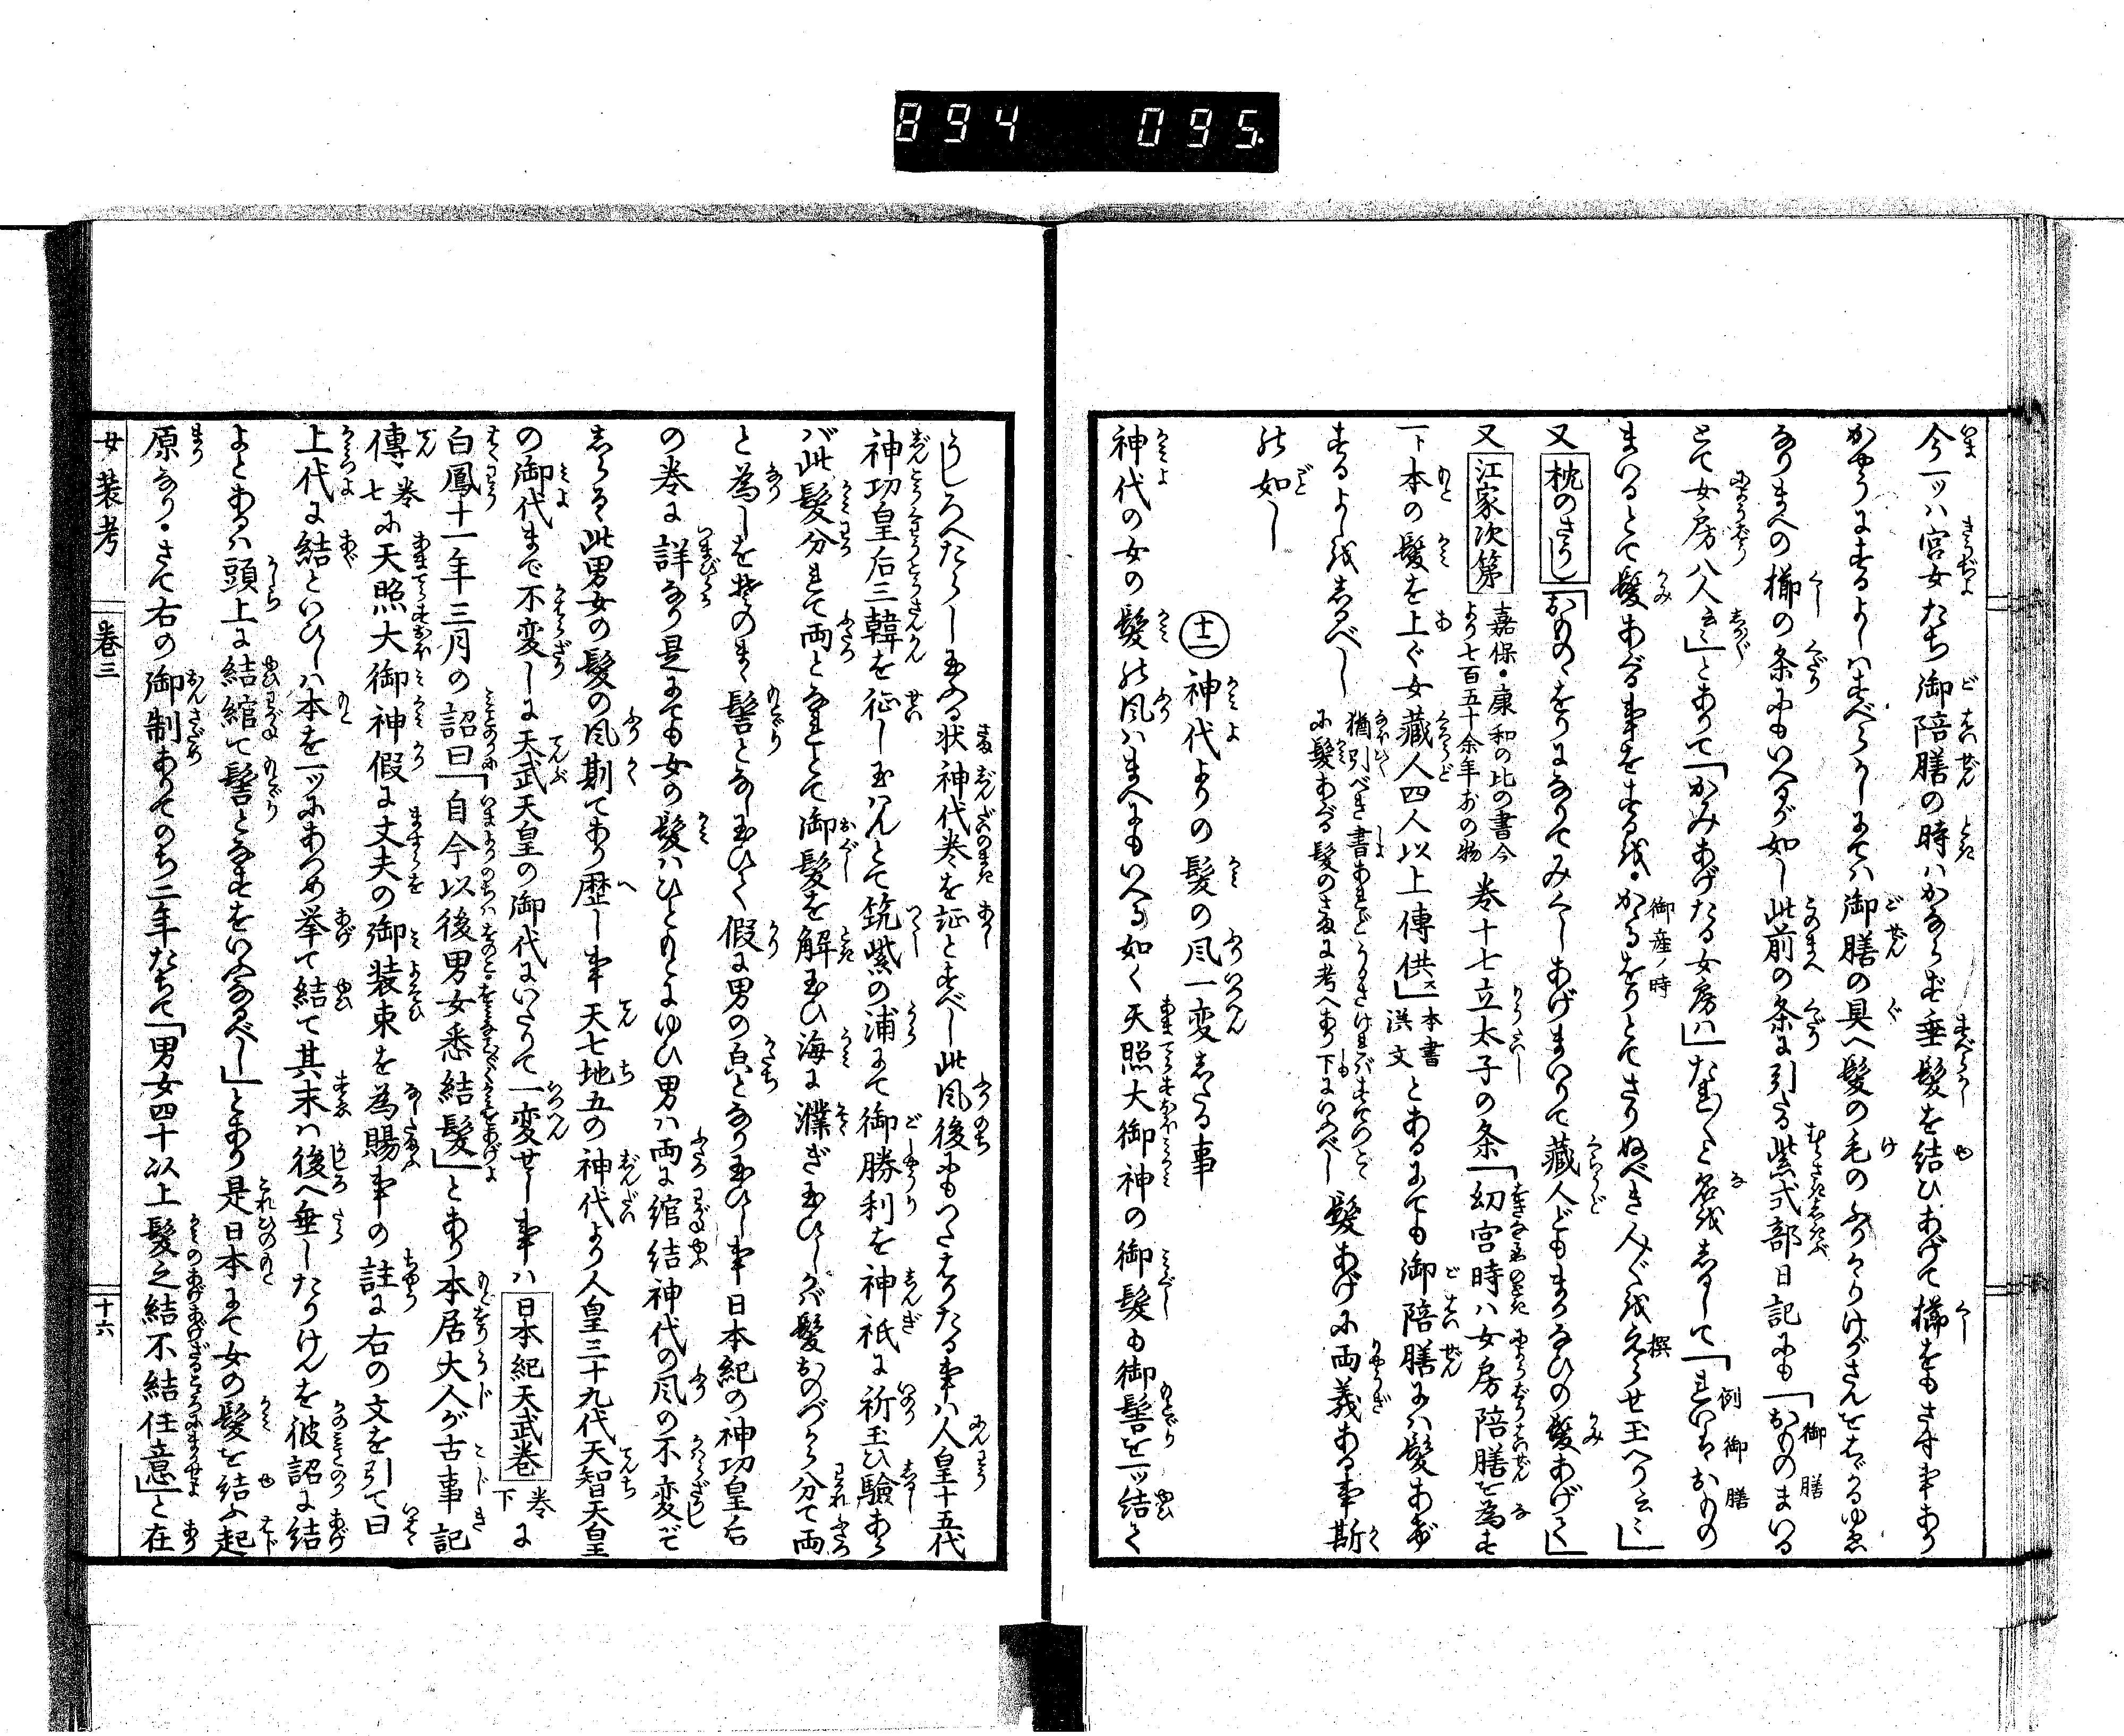 894 095.
今一ッハ宮女たち御陪膳の時ハかならず垂髪を結ひあげて櫛をもさす事あり
かやうにするよしハすべらかしにてハ御膳の具へ髪の毛のふりかゝりけがさんをおぢかるゆゑ
なりまへの櫛の条にもいへるが如し此前の条に引たる紫式部日記にも「おものまいる
とて女房八人云々」とありて「かみあげたる女房ハ」たれ〳〵と名をしるして「れいはおもの
まいるとて髪あぐる事をするを・かゝるをりとてさりぬべき人〴〵をえらせ玉へり云々」
又枕のさうし「おものゝをりになりてみぐしあげまいりて蔵人どもまかなひの髪あげて」
又江家次第嘉保・康和の比の書今より七百五十余年おの物巻十七立太子の条「幼宮時ハ女房陪膳を為す
一下本の髪を上ぐ女蔵人四人以上傳供ス」本書漢文とあるにても御陪膳にハ髪あぐ
するよしをしるべし猶引べき書あれどうるさければすてのせずに髪あぐる髪のさまに考へあり下にいふべし髪あげに両義ある事斯
の如し
十二神代よりの髪の風一変したる事
神代の女の髪の風ハまへにもいへる如く天照大御神の御髪も御髻を一ッ結て
うしろへたらし玉へる状神代巻を証とすべし此風後にもつたはりたる事ハ人皇十五代
神功皇后三韓を征し玉はんとて筑紫の浦にて御勝利を神祇に祈玉ひ驗あら
バ此髪分れて両となれとて御髪を解玉ひ海に濯ぎ玉ひしかバ髪おのづから分て両
と為しをそのまゝ髻となし玉ひて假に男の㒵となり玉ひし事日本紀の神功皇后
の巻に詳なり是にても女の髪ハひともとにゆひ男ハ両に綰結神代の風の不変ぞ
しらるゝ此男女の髪の風斯てあり歴し事天七地五の神代より人皇三十九代天智天皇
の御代まで不変しに天武天皇の御代にいたりて一変せし事ハ日本紀天武巻巻下に
白鳳十一年三月の詔曰「自今以後男女悉結髪」とあり本居大人が古事記
傳巻七に天照大御神假に丈夫の御装束を為賜事の註に右の文を引て曰
上代に結といひしハ本を一ッにあつめ挙て結て其末ハ後へ垂したりけんを彼詔に結
よとあるハ頭上に結綰て髻となすをいふなるべし」とあり是日本にて女の髪を結ふ起
原なり・さて右の御制ありてのち二年たちて「男女四十以上髪之結不結任意」と在
御産ノ時
撰
例御膳
御膳
女装考
巻三
十六